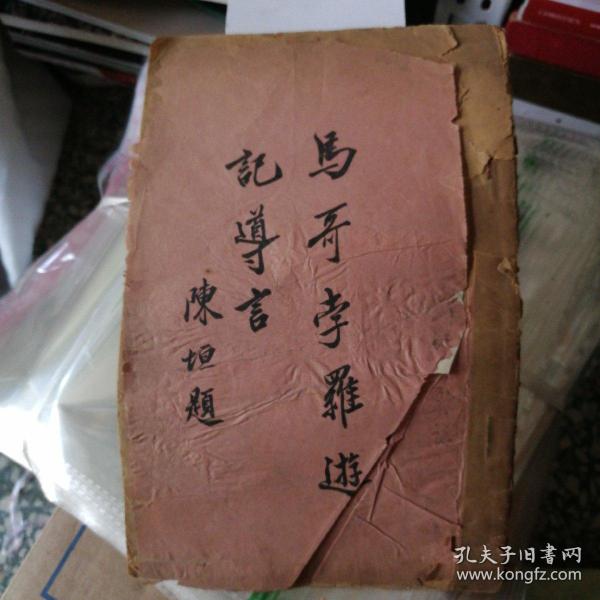 馬哥孛羅遊
記導言
陳垣題
孔夫子旧书网
www.kongfz.com